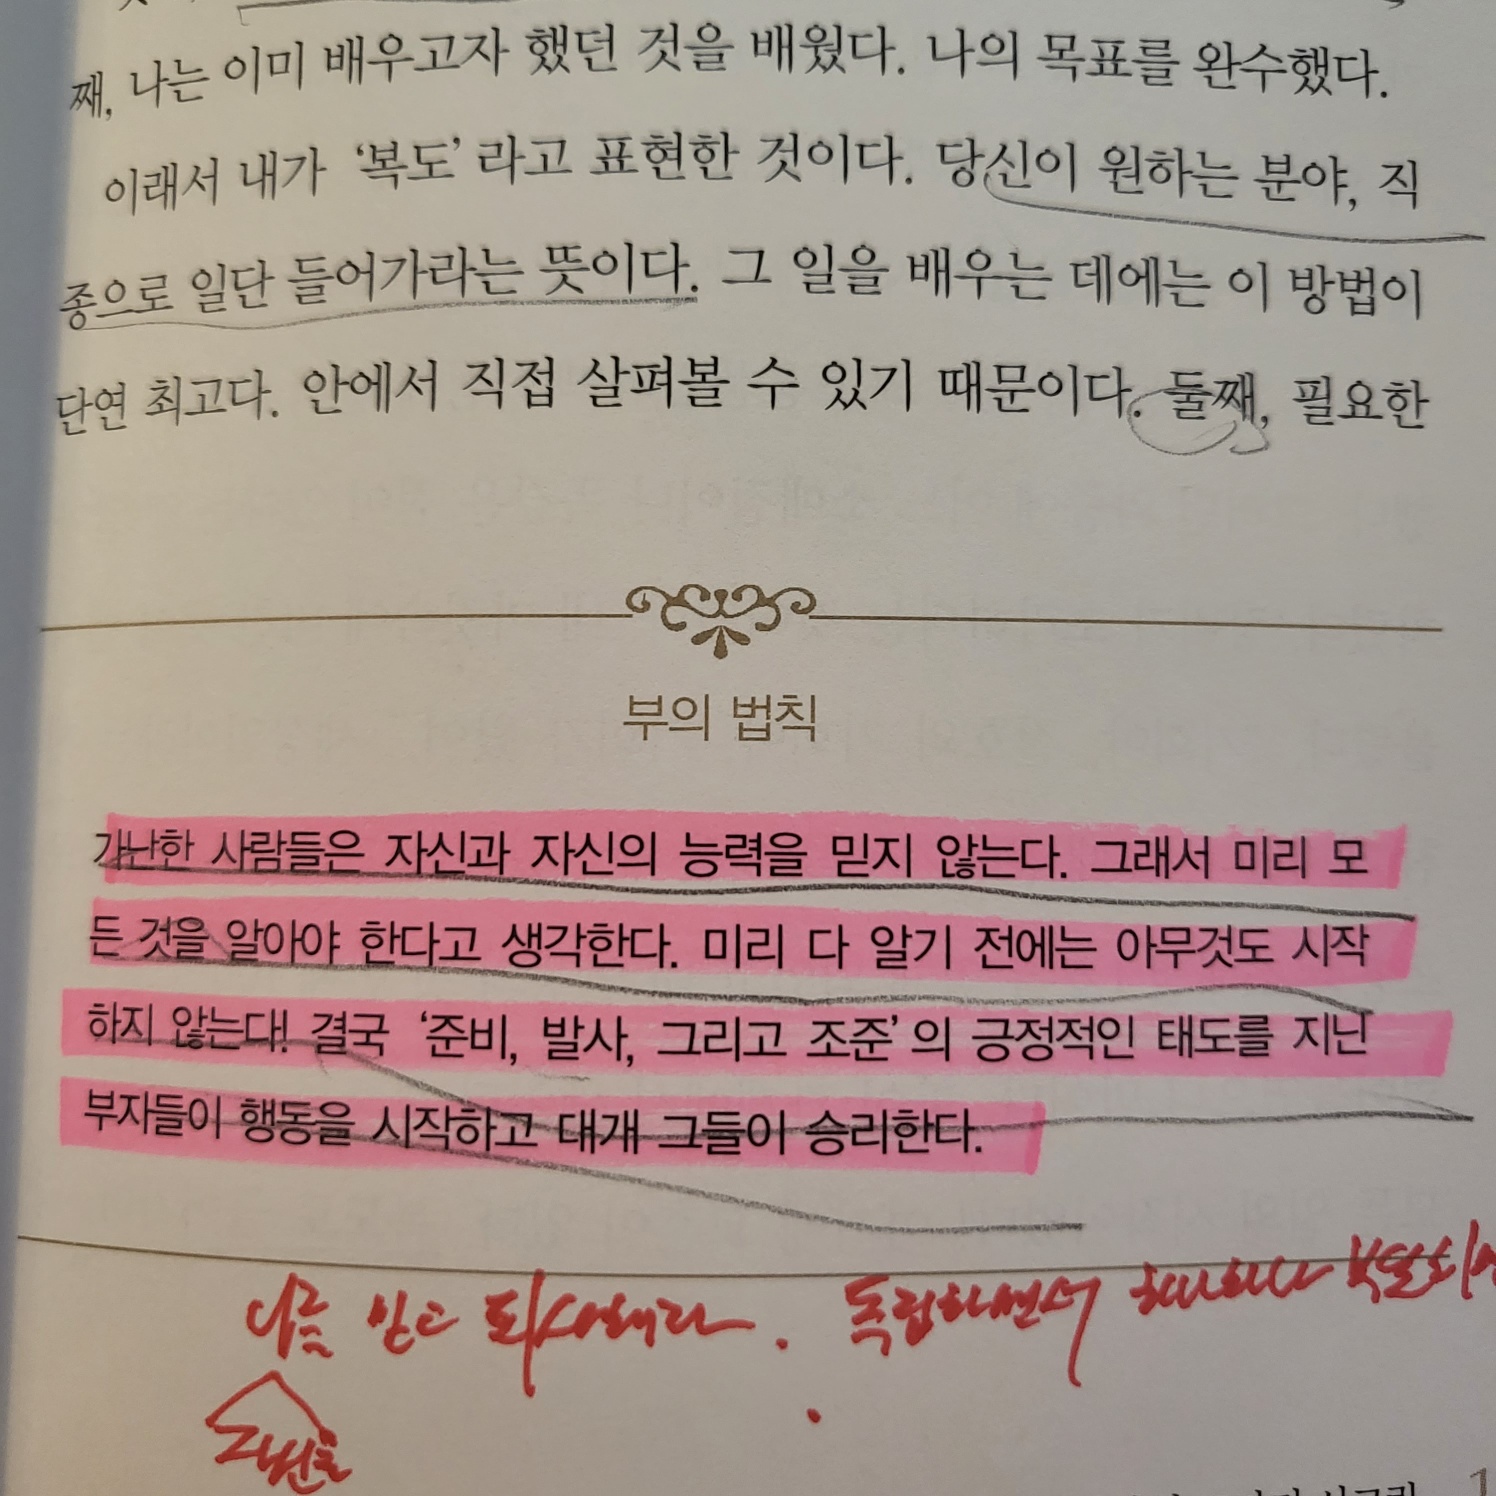 째, 나는 이미 배우고자 했던 것을 배웠다. 나의 목표를 완수했다.
이래서 내가 ‘복도’라고 표현한 것이다. 당신이 원하는 분야, 직
종으로 일단 들어가라는 뜻이다. 그 일을 배우는 데에는 이 방법이
단연 최고다. 안에서 직접 살펴볼 수 있기 때문이다. 둘째, 필요한
부의 법칙
가난한 사람들은 자신과 자신의 능력을 믿지 않는다. 그래서 미리 모
든 것을 알아야 한다고 생각한다. 미리 다 알기 전에는 아무것도 시작
하지 않는다! 결국 ‘준비, 발사, 그리고 조준’의 긍정적인 태도를 지닌
부자들이 행동을 시작하고 대개 그들이 승리한다.
믿고